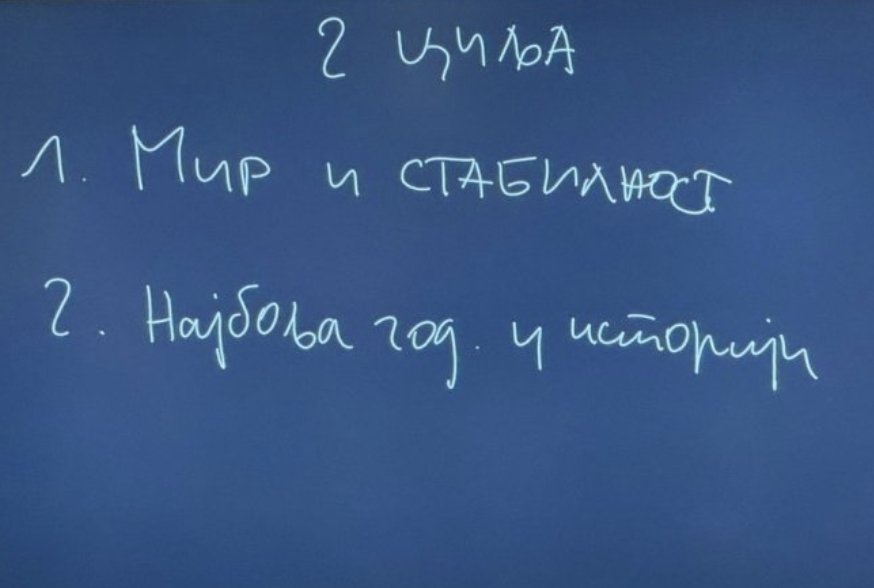 2 ЦИЉА
1. Мир и СТАБИЛНОСТ
2. Најбоља год. у историји